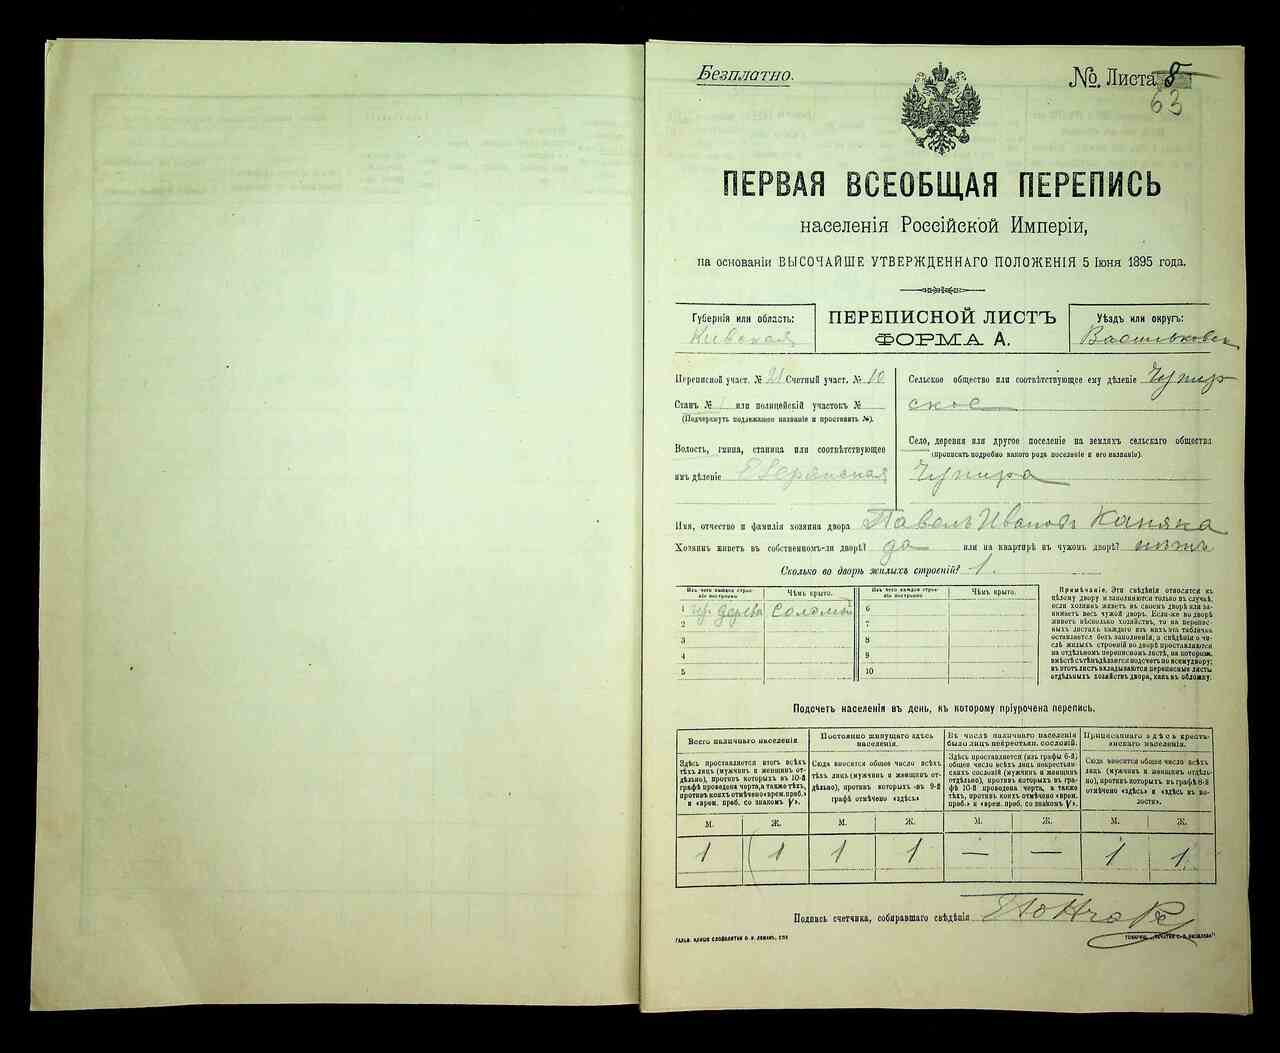 Безплатно.
№. Листа 8
63
ПЕРВАЯ ВСЕОБЩАЯ ПЕРЕПИСЬ
населенія Россійской Имперіи,
на основаніи ВЫСОЧАЙШЕ УТВЕРЖДЕННАГО ПОЛОЖЕНІЯ 5 Іюня 1895 года.
Губернія или область:
Кіевская
ПЕРЕПИСНОЙ ЛИСТЪ
ФОРМА А.
Уѣздъ или округъ:
Васильковск
Переписной участ. № 21 Счетный участ. № 10
Станъ № 1 или полицейскій участокъ №
(Подчеркнуть подлежащее названіе и проставить №).
Волость, гмина, станица или соотвѣтствующее
имъ дѣленіе
Сельское общество или соотвѣтствующее ему дѣленіе Чупир
ское
Село, деревня или другое поселеніе на земляхъ сельскаго общества
(прописать подробно какого рода поселеніе и его названіе).
Чупира
Имя, отчество и фамилія хозяина двора Павелъ Ивановъ Каняка
Хозяинъ живетъ въ собственномъ-ли дворѣ? да или на квартирѣ въ чужомъ дворѣ? нѣтъ
Сколько во дворѣ жилыхъ строеній? 1.
Изъ чего каждое строеніе построено
Чѣмъ крыто.
Изъ чего каждое строеніе построено
Чѣмъ крыто.
1 дерева Соломой
2
3
4
5
6
7
8
9
10
Примѣчаніе. Эти свѣдѣнія относятся къ
цѣлому двору и заполняются только въ случаѣ,
если хозяинъ живетъ въ своемъ дворѣ или за-
нимаетъ весь чужой дворъ. Если-же во дворѣ
живетъ нѣсколько хозяйствъ, то на перепис-
ныхъ листахъ каждаго изъ нихъ эта табличка
оставляется безъ заполненія, а свѣдѣнія о чи-
слѣ жилыхъ строеній во дворѣ проставляются
на отдѣльномъ переписномъ листѣ, на которомъ
вмѣстѣ съ тѣмъ дѣлается подсчетъ по всему двору;
въ этотъ листъ вкладываются переписные листы
отдѣльныхъ хозяйствъ двора, какъ въ обложку.
Подсчетъ населенія въ день, къ которому пріурочена перепись.
Всего наличнаго населенія.
Здѣсь проставляется итогъ всѣхъ
тѣхъ лицъ (мужчинъ и женщинъ от-
дѣльно), противъ которыхъ въ 10-й
графѣ проведена черта, а также тѣхъ,
противъ коихъ отмѣчено «врем. преб.»
и «врем. преб. со знакомъ V».
Постоянно живущаго здѣсь
населенія.
Сюда вносится общее число всѣхъ
тѣхъ лицъ (мужчинъ и женщинъ от-
дѣльно), противъ которыхъ въ 9-й
графѣ отмѣчено «здѣсь»
Въ числѣ наличнаго населенія
было лицъ некрестьян. сословій.
Здѣсь проставляется (изъ графы 6-й)
общее число всѣхъ лицъ некрестьян-
скихъ сословій (мужчинъ и женщинъ
отдѣльно), противъ которыхъ въ гра-
фѣ 10-й проведена черта, а также
тѣхъ, противъ коихъ отмѣчено «врем.
преб.» и «врем. преб. со знакомъ V».
Приписаннаго здѣсь кресть-
янскаго населенія.
Сюда вносится общее число всѣхъ
лицъ (мужчинъ и женщинъ отдѣль-
но), противъ которыхъ въ графѣ 8-й
отмѣчено «здѣсь» и «здѣсь въ во-
лости».
М. Ж. М. Ж. М. Ж. М. Ж.
1 1 1 1 — — 1 1
Подпись счетчика, собиравшаго свѣдѣнія